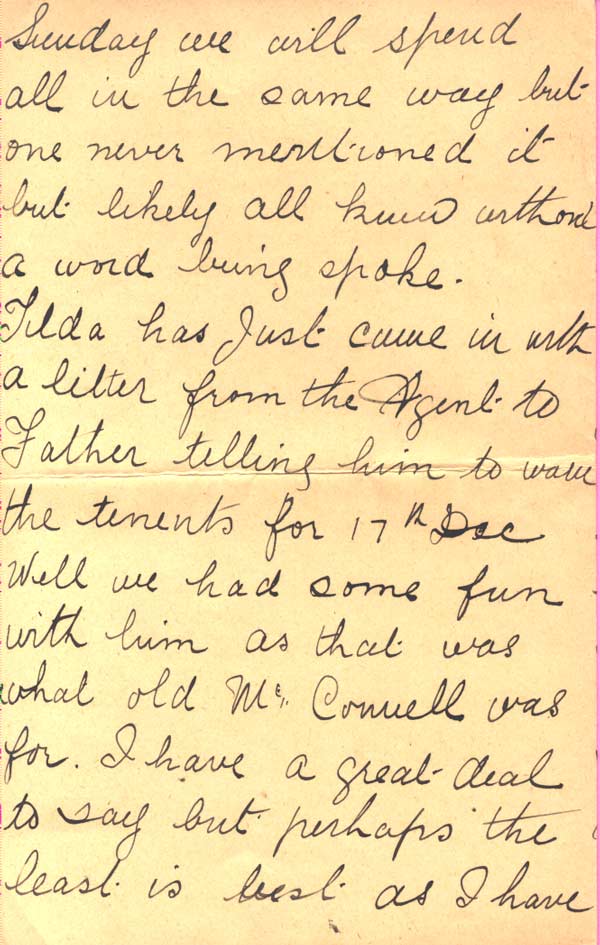 Sunday we will spend
all in the same way but
one never mentioned it
but likely all knew without
a word being spoke.
Tilda has Just came in with
a letter from the Agent to
Father telling him to warn
the tenents for 17th Dec
Well we had some fun
with him as that was
what old Mc Connell was
for. I have a great deal
to say but perhaps the
least is best as I have